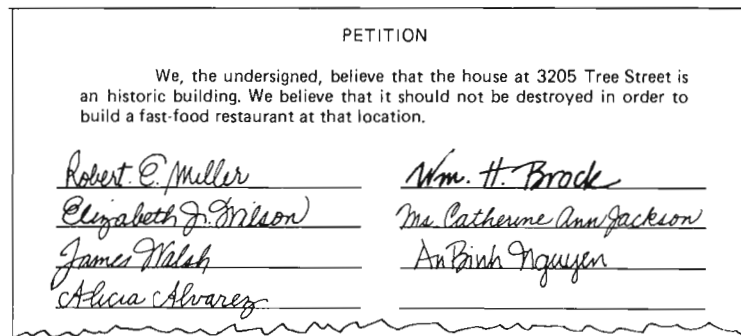 PETITION
We, the undersigned, believe that the house at 3205 Tree Street is
an historic building. We believe that it should not be destroyed in order to
build a fast-food restaurant at that location.
Robert E. Miller
Elizabeth J. Wilson
James Walsh
Alicia Alvarez
Wm. H. Brock
Ms. Catherine Ann Jackson
An Binh Nguyen